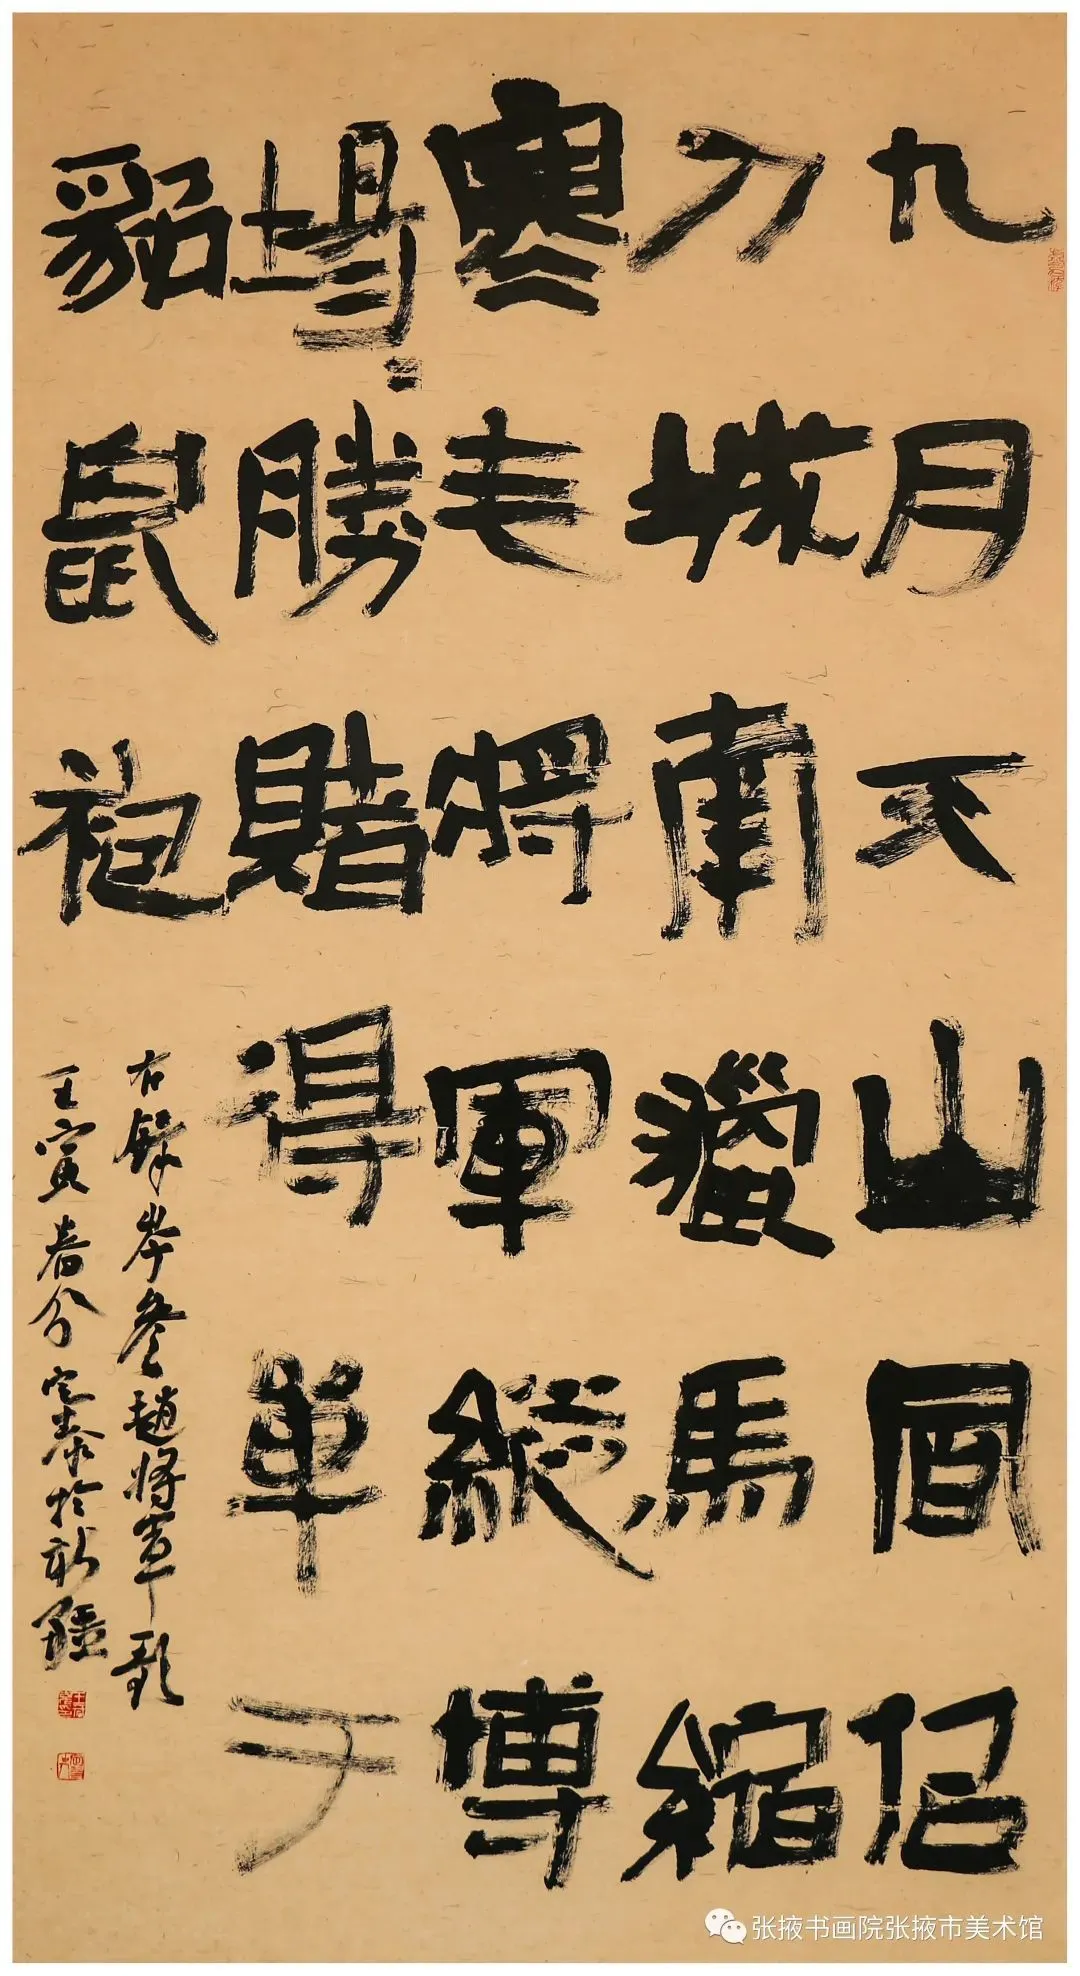 九月天山風佀
刀城南獵馬縮
寒毛將軍縱博
場〻勝賭得單于
貂鼠袍
右錄岑參趙將軍歌
壬寅春分定泰於新疆
张掖书画院张掖市美术馆